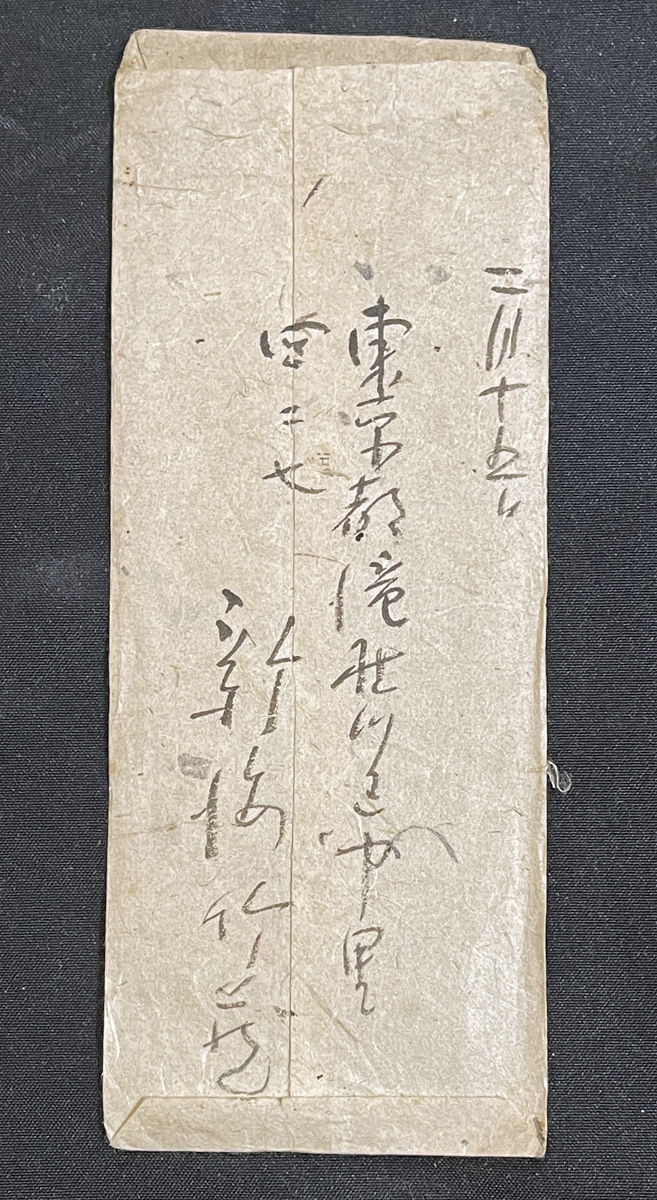 二月十五日
東京都滝野川区中里
四二七
新海竹蔵